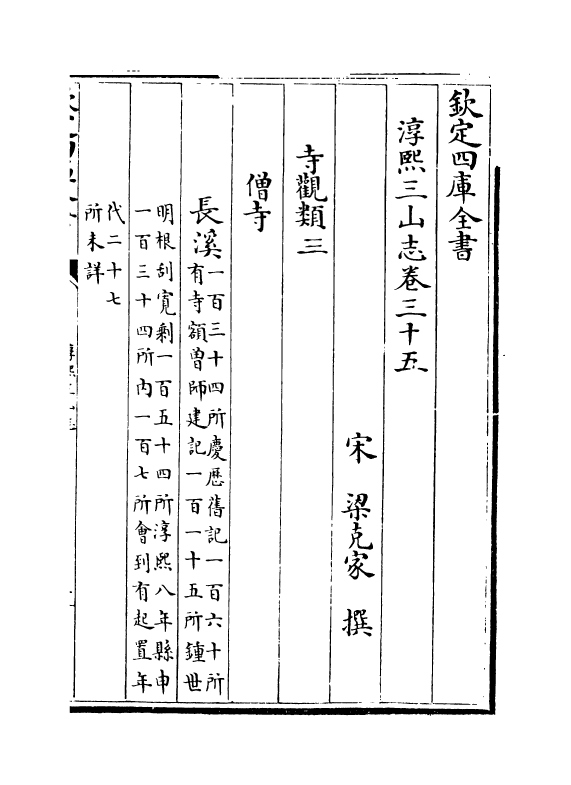 欽定四庫全書
淳熙三山志卷三十五
宋 梁克家 撰
寺觀類三
僧寺
長溪一百三十四所慶歴舊記一百六十所
有寺額曽師建記一百一十五所鍾世
明根刮寛剩一百五十四所淳熙八年縣申
一百三十四所内一百七所會到有起置年
代二十七
所未詳